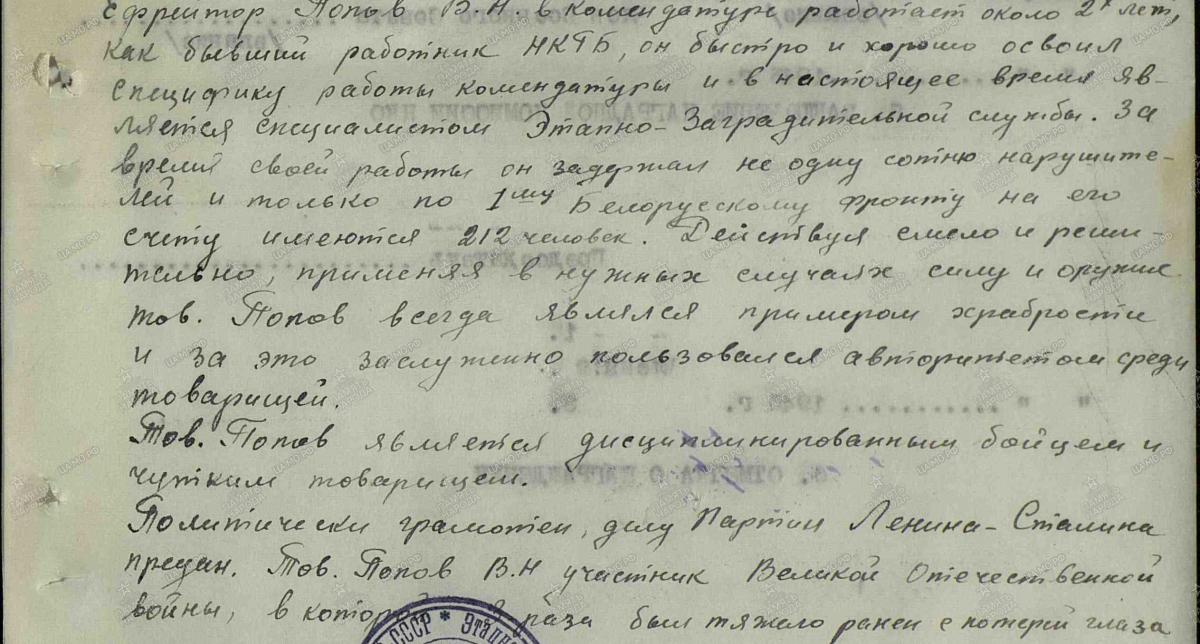 Ефрейтор Попов В.Н. в комендатуре работает около 2х лет,
как бывший работник НКГБ, он быстро и хорошо освоил
специфику работы комендатуры и в настоящее время яв-
ляется специалистом Этапно-Заградительной службы. За
время своей работы он задержал не одну сотню нарушите-
лей и только по 1му Белорусскому фронту на его
счету имеются 212 человек. Действуя смело и реши-
тельно, применяя в нужных случаях силу и оружие
тов. Попов всегда являлся примером храбрости
и за это заслуженно пользовался авторитетом среди
товарищей.
Тов. Попов является дисциплинированным бойцем и
чутким товарищем.
Политически грамотен, делу Партии Ленина-Сталина
предан. Тов. Попов В.Н участник Великой Отечественной
войны, в которой раза был тяжело ранен с потерей глаза
СССР * Этапно